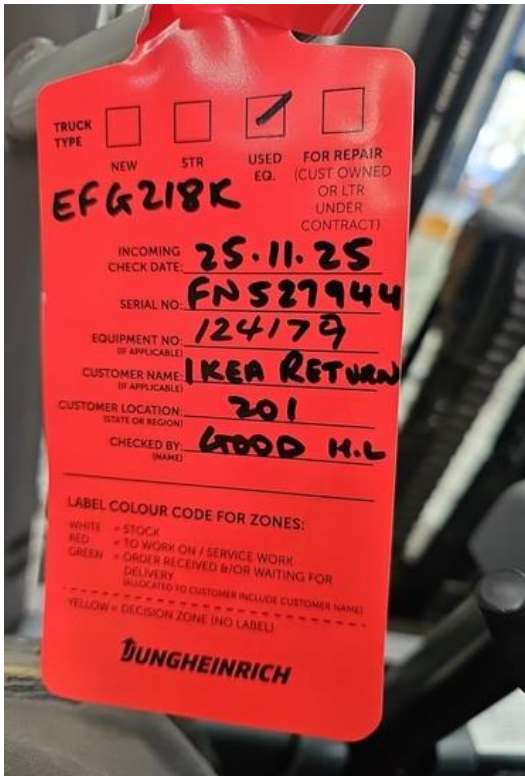 TRUCK TYPE
NEW STR USED EQ. FOR REPAIR (CUST OWNED OR LTR UNDER CONTRACT)
EFG218K
INCOMING CHECK DATE: 25.11.25
SERIAL NO: FN527944
EQUIPMENT NO: (IF APPLICABLE) 124179
CUSTOMER NAME: (IF APPLICABLE) IKEA RETURN
CUSTOMER LOCATION: (STATE OR REGION) 201
CHECKED BY: (NAME) GOOD H.L
LABEL COLOUR CODE FOR ZONES:
WHITE = STOCK
RED = TO WORK ON / SERVICE WORK
GREEN = ORDER RECEIVED &/OR WAITING FOR
DELIVERY
(ALLOCATED TO CUSTOMER INCLUDE CUSTOMER NAME)
YELLOW = DECISION ZONE (NO LABEL)
JUNGHEINRICH